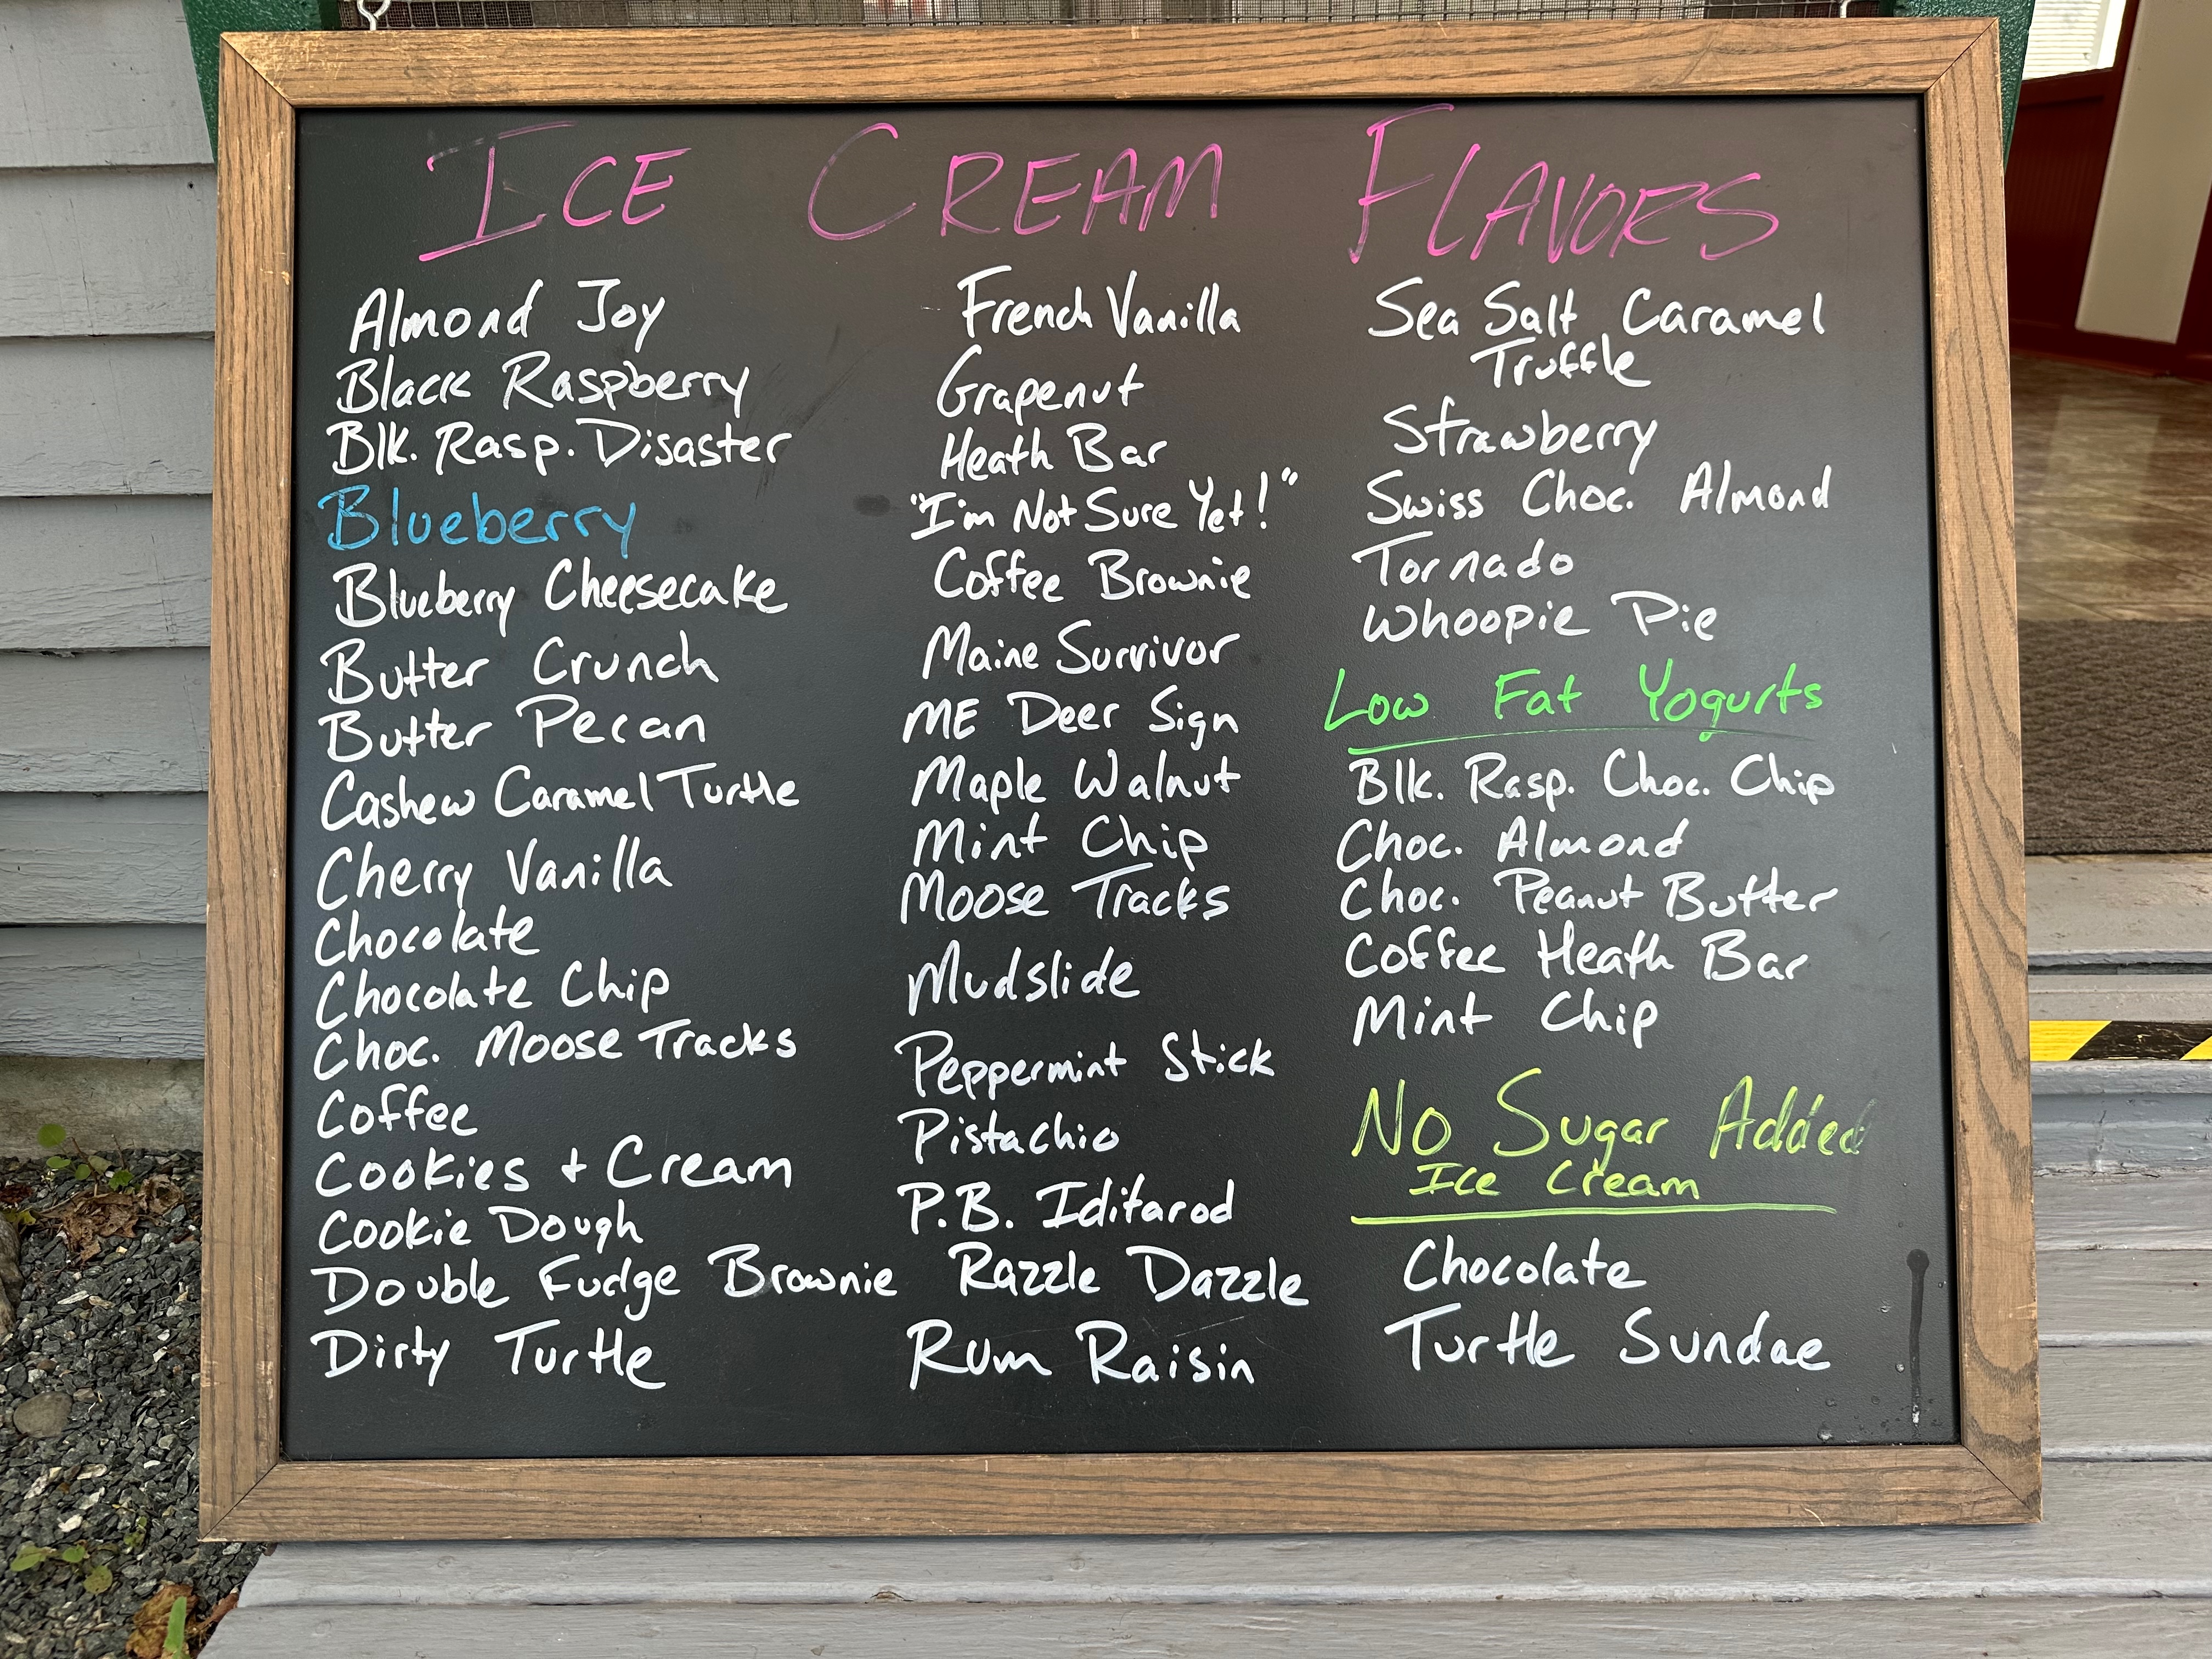 ICE CREAM FLAVORS
Almond Joy
Black Raspberry
Blk. Rasp. Disaster
Blueberry
Blueberry Cheesecake
Butter Crunch
Butter Pecan
Cashew Caramel Turtle
Cherry Vanilla
Chocolate
Chocolate Chip
Choc. Moose Tracks
Coffee
Cookies + Cream
Cookie Dough
Double Fudge Brownie
Dirty Turtle
French Vanilla
Grapenut
Heath Bar
"I'm Not Sure Yet!"
Coffee Brownie
Maine Survivor
ME Deer Sign
Maple Walnut
Mint Chip
Moose Tracks
Mudslide
Peppermint Stick
Pistachio
P.B. Iditarod
Razzle Dazzle
Rum Raisin
Sea Salt Caramel
Truffle
Strawberry
Swiss Choc. Almond
Tornado
Whoopie Pie
Low Fat Yogurts
Blk. Rasp. Choc. Chip
Choc. Almond
Choc. Peanut Butter
Coffee Heath Bar
Mint Chip
No Sugar Added
Ice Cream
Chocolate
Turtle Sundae